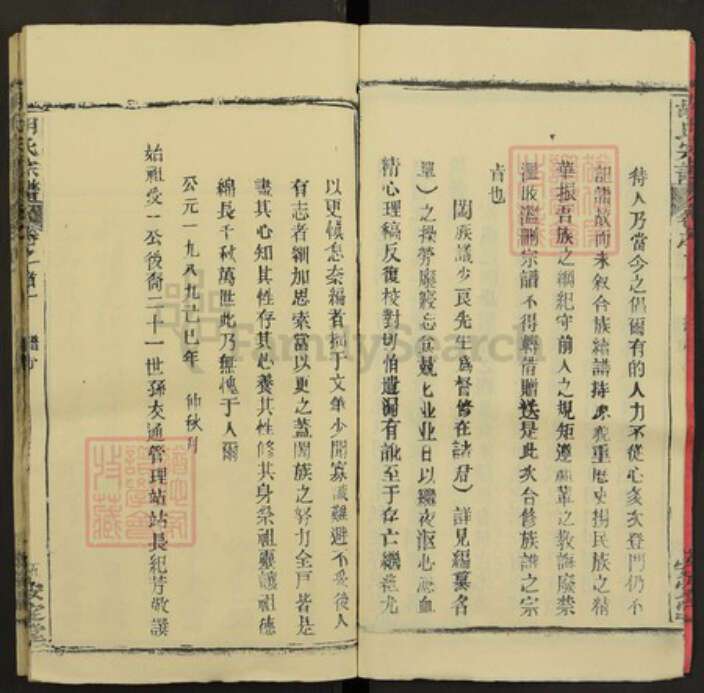 待人乃當今之倡爾有的人力不從心亥次登門仍不
華振吾族之綱紀守前人之規矩遵之教誨廢禁
濫刪宗譜不得轉借贈送是此次合修族譜之宗
旨也
閤族議少良先生爲督修在諸君）詳見編纂名
單）之操勞廢寢忘兢兢业业日以繼夜漚心瀝血
精心理稿反復校對切怕遺漏有訛至于存亡繼絶尤
以更慎怠奈編者拙于文筆少聞寡識難避不受後人
有志者細加思索當以更之蓋閤族之努力全戶皆是
盡其心知其性存其心養其性修其身祭祖靈讓祖德
綿長千秋萬世此乃無愧于人爾
公元一九八九己巳年 仲秋月
始祖受一公後裔二十一世孫交通管理站站長紀芳敬譔
胡氏宗譜
卷之首
安定堂
胡氏宗譜
安定堂
FamilySearch